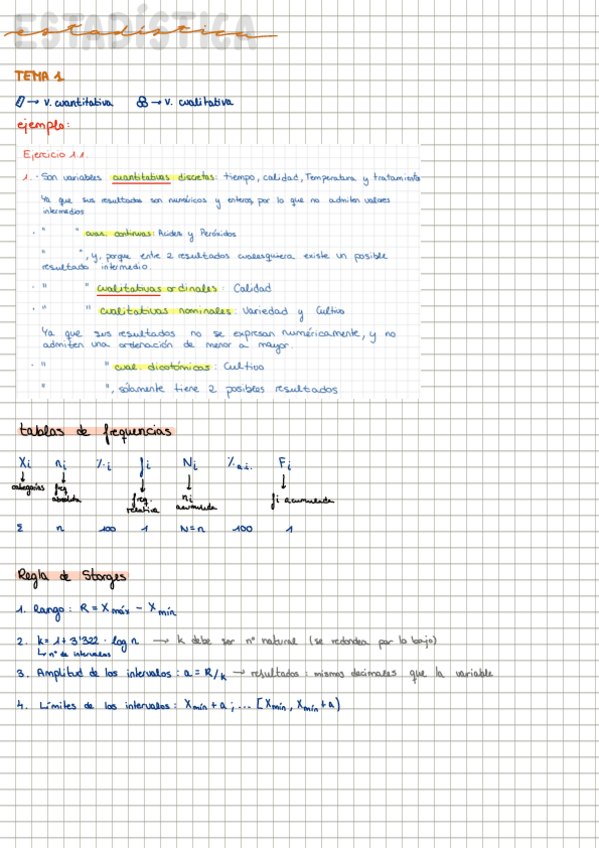 ESTADÍSTICA
estadística
TEMA 1
→ v. cuantitativa → v. cualitativa
ejemplo:
Ejercicio 1.1.
1. · Son variables cuantitativas discretas: tiempo, calidad, Temperatura y tratamiento
Ya que sus resultados son numéricos y enteros, por lo que no admiten valores
intermedios
· " " cuan. continuas: Acidez y Peróxidos
" ", y, porque entre 2 resultados cualesquiera existe un posible
resultado intermedio.
· " " cualitativas ordinales: Calidad
· " " cualitativas nominales: Variedad y Cultivo
Ya que sus resultados no se expresan numéricamente, y no
admiten una ordenación de menor a mayor.
· " " cual. dicotómicas: Cultivo
" ", sólamente tiene 2 posibles resultados
tablas de frequencias
Xi ni %i fi Ni %a.i. Fi
↓ ↓ ↓ ↓ ↓
categorías freq. absoluta freq. relativa ni acumulada fi acumulada
Σ n 100 1 N=n 100 1
Regla de Storges
1. Rango: R = X máx - X mín
2. k= 1+3'322 · log n → k debe ser nº natural (se redondea por lo bajo)
↳ nº de intervalos
3. Amplitud de los intervalos: a = R/k → resultados: mismos decimales que la variable
4. Límites de los intervalos: Xmín + a ; ... [Xmín, Xmín + a)